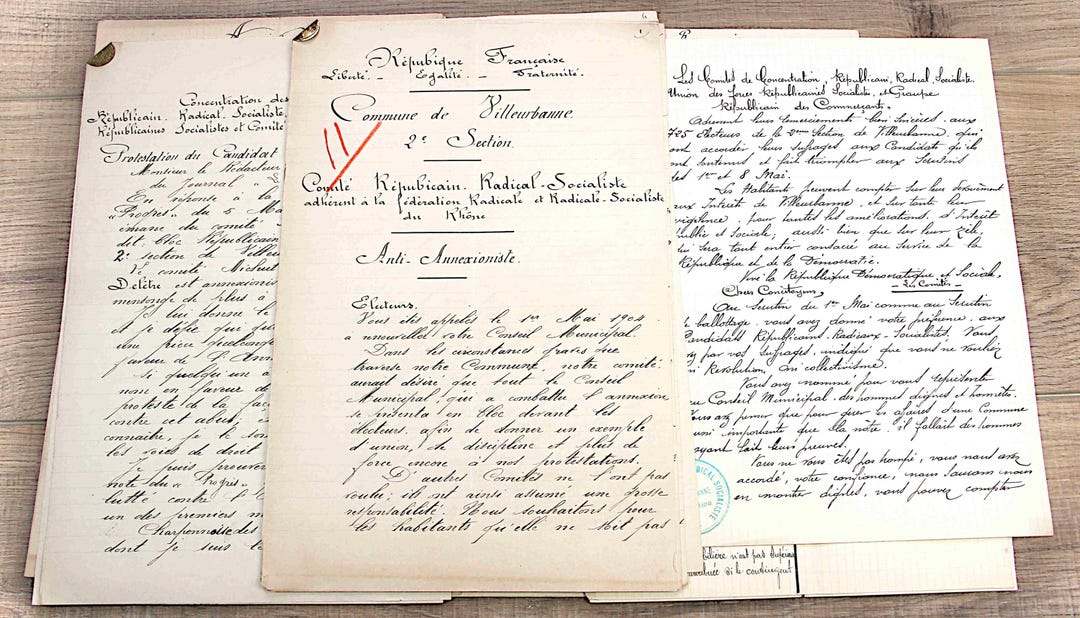 Concentration des
Républicain. Radical. Socialiste,
Républicaines Socialistes et Comité
Protestation du Candidat
Monsieur le Rédacteur
du Journal "
En réponse à la
"Progrès" du 5 Ma
émané du comité
dit bloc Républicain
2e section de Villeu
Le comité
Delètre est annexionis
mensonge de plus à
Je lui donne le
et je défie qui que
une pièce quelconque
faveur de l'Ann
Si quelqu'un a
nom en faveur de
proteste de la faç
contre cet abus, e
connaitre, je le
les voies de droit
Je puis prouver
note du "Progrès"
lutté contre l'
un des premiers m
Charpennoise des
dont je suis le
1
Répubique Française
Liberté. _ Egalité. _ Fraternité.
Commune de Villeurbanne
11
2e Section.
Comité Républicain. Radical-Socialiste
adhérent à la fédération Radicale et Radicale-Socialiste
du Rhône
Anti-Annexioniste.
Electeurs.
Vous êtes appelés le 1er Mai 1904
a nouveller votre Conseil Municipal.
Dans les circonstances graves que
traverse notre Commune, notre comité
aurait désiré que tout le Conseil
Municipal, qui a combattu l'annexion
se présenta en bloc devant les
électeurs, afin de donner un exemple
d'union, de discipline et plus de
force encore à nos protestations.
D'autres Comités ne l'ont pas
voulu; ils ont ainsi assumé une grosse
responsabilité. Nous souhaitons pour
les habitants qu'elle ne soit pas
Les Comités de Concentration, Républicain, Radical, Socialiste.
Union des forces Républicaines Socialistes, et Groupe
Républicain des Commerçants.
Adressent leurs remerciements bien sincères, aux
725 Electeurs de la 2eme Section de Villeurbanne, qui
ont accorder leurs suffrages aux Candidats qu'ils
ont soutenus et fait triompher aux Scrutins
des 1er et 8 Mai.
Les Habitants peuvent compter sur leur Dévouement
aux Intérêt de Villeurbanne, et sur toute leur
vigilence, pour toutes les améliorations, d'Intérêt
Public et Sociale; aussi bien que sur leur zèle,
qui sera tout entier consacré au Service de la
République et de la Démocratie.
Vive la République Démocratique et Sociale,
_ Les Comités _
Chers Concitoyens,
Au Scrutin du 1er Mai comme au Scrutin
de ballottage, vous avez donné votre préférence, aux
Candidats Républicains-Radicaux-Socialistes. Vous
avez par vos suffrages, indiqué que vous ne vouliez
ni Révolution, ni collectivisme.
Vous avez nommé pour vous représenter
au Conseil Municipal, des hommes dignes et honnêtes.
Vous avez penser que pour gérer les affaires d'une Commune
aussi importante que la notre, il fallait des hommes
ayant fait leurs preuves.
Vous ne vous êtes pas trompé, vous nous avez
accordé, votre confiance, nous saurons nous
en montrer dignes, vous pouvez compter
RADICAL SOCIALISTE
bilière n'est pas supérieu
si le contingent